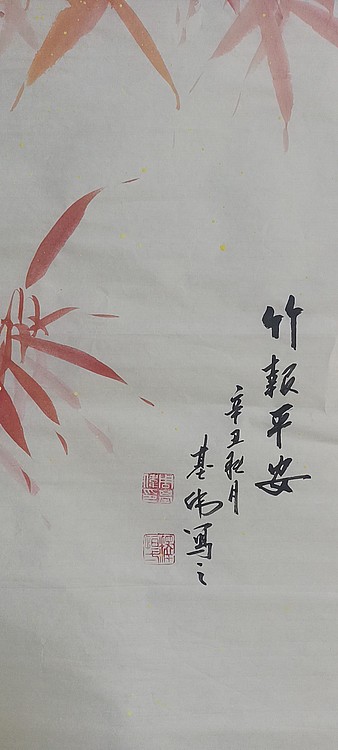 竹報平安
辛丑秋月
基衛寫之